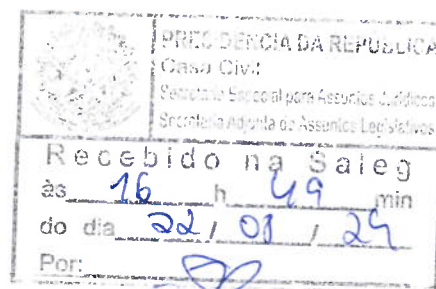 PRESIDÊNCIA DA REPÚBLICA
Casa Civil
Secretaria Especial para Assuntos Jurídicos
Secretaria Adjunta de Assuntos Legislativos
Recebido na Saleg
às 16 h 49 min
do dia 22 / 03 / 24
Por: